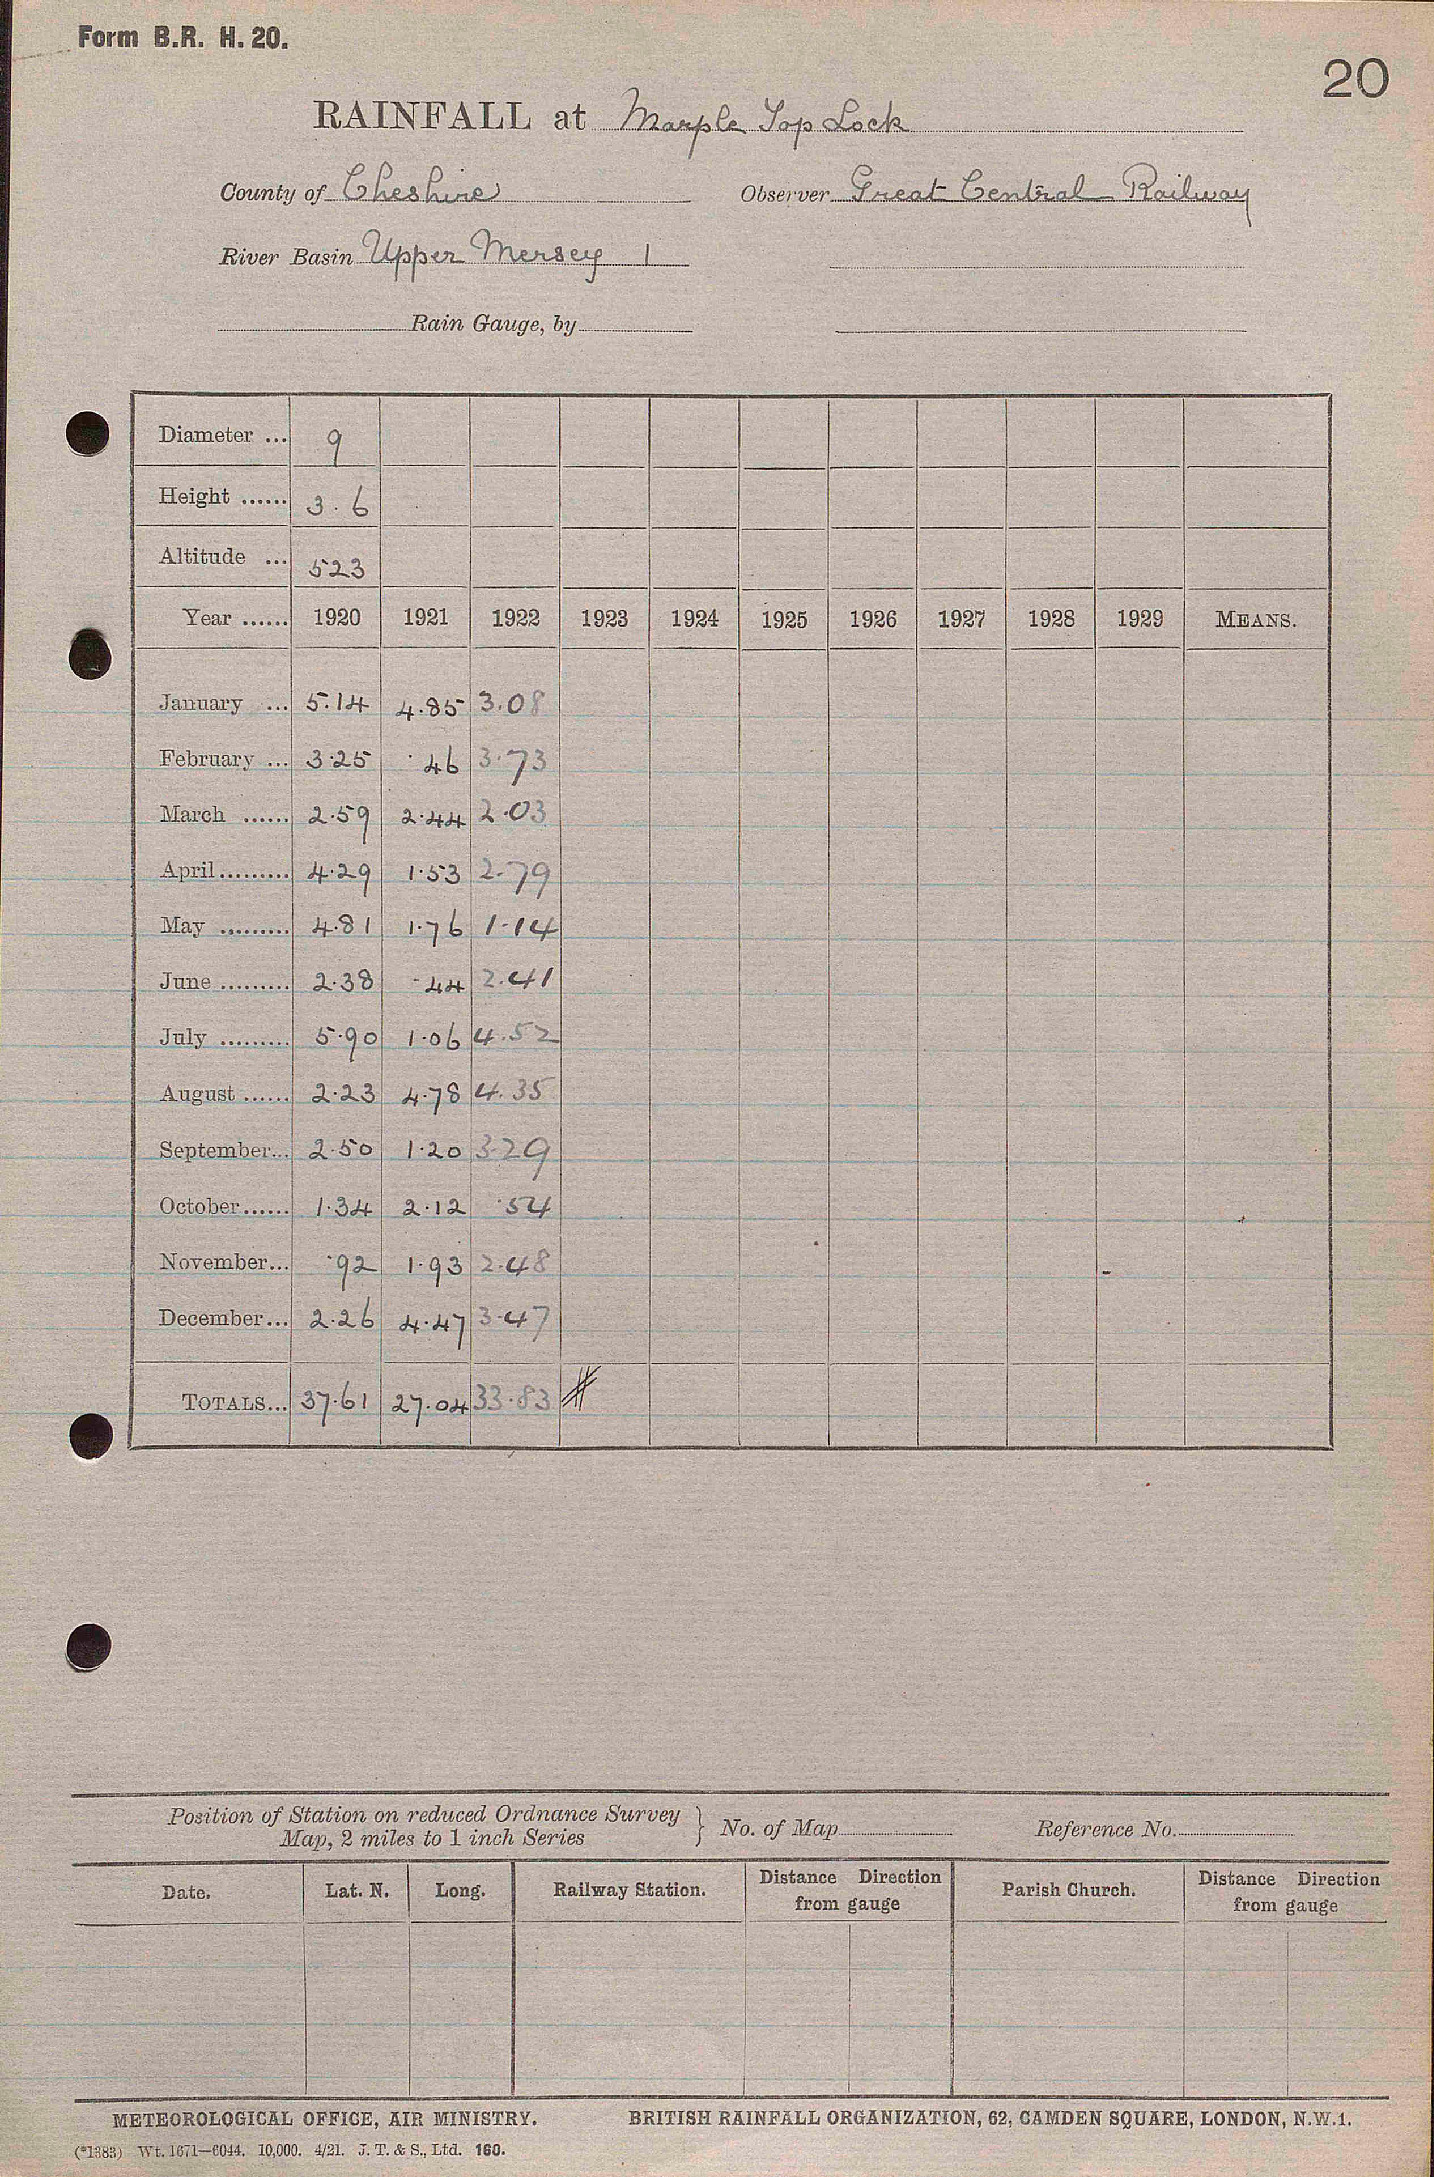 Form B.R. H. 20.
20
RAINFALL at Marple Top Lock
County of Cheshire Observer Great Central Railway
River Basin Upper Mersey 1
Rain Gauge, by
Diameter ... 9
Height ...... 3.6
Altitude ... 523
Year ...... 1920 1921 1922 1923 1924 1925 1926 1927 1928 1929 MEANS.
January ... 5.14 4.85 3.08
February ... 3.25 .46 3.73
March ...... 2.59 2.44 2.03
April......... 4.29 1.53 2.79
May ......... 4.81 1.76 1.14
June ......... 2.38 .44 2.41
July ......... 5.90 1.06 4.52
August ...... 2.23 4.78 4.35
September... 2.50 1.20 3.29
October...... 1.34 2.12 .54
November... .92 1.93 2.48
December... 2.26 4.47 3.47
TOTALS... 37.61 27.04 33.83
Position of Station on reduced Ordnance Survey
Map, 2 miles to 1 inch Series } No. of Map Reference No.
Date. Lat. N. Long. Railway Station. Distance Direction from gauge Parish Church. Distance Direction from gauge
METEOROLOGICAL OFFICE, AIR MINISTRY. BRITISH RAINFALL ORGANIZATION, 62, CAMDEN SQUARE, LONDON, N.W.1.
(*1383) Wt. 1671—6044. 10,000. 4/21. J. T. & S., Ltd. 160.